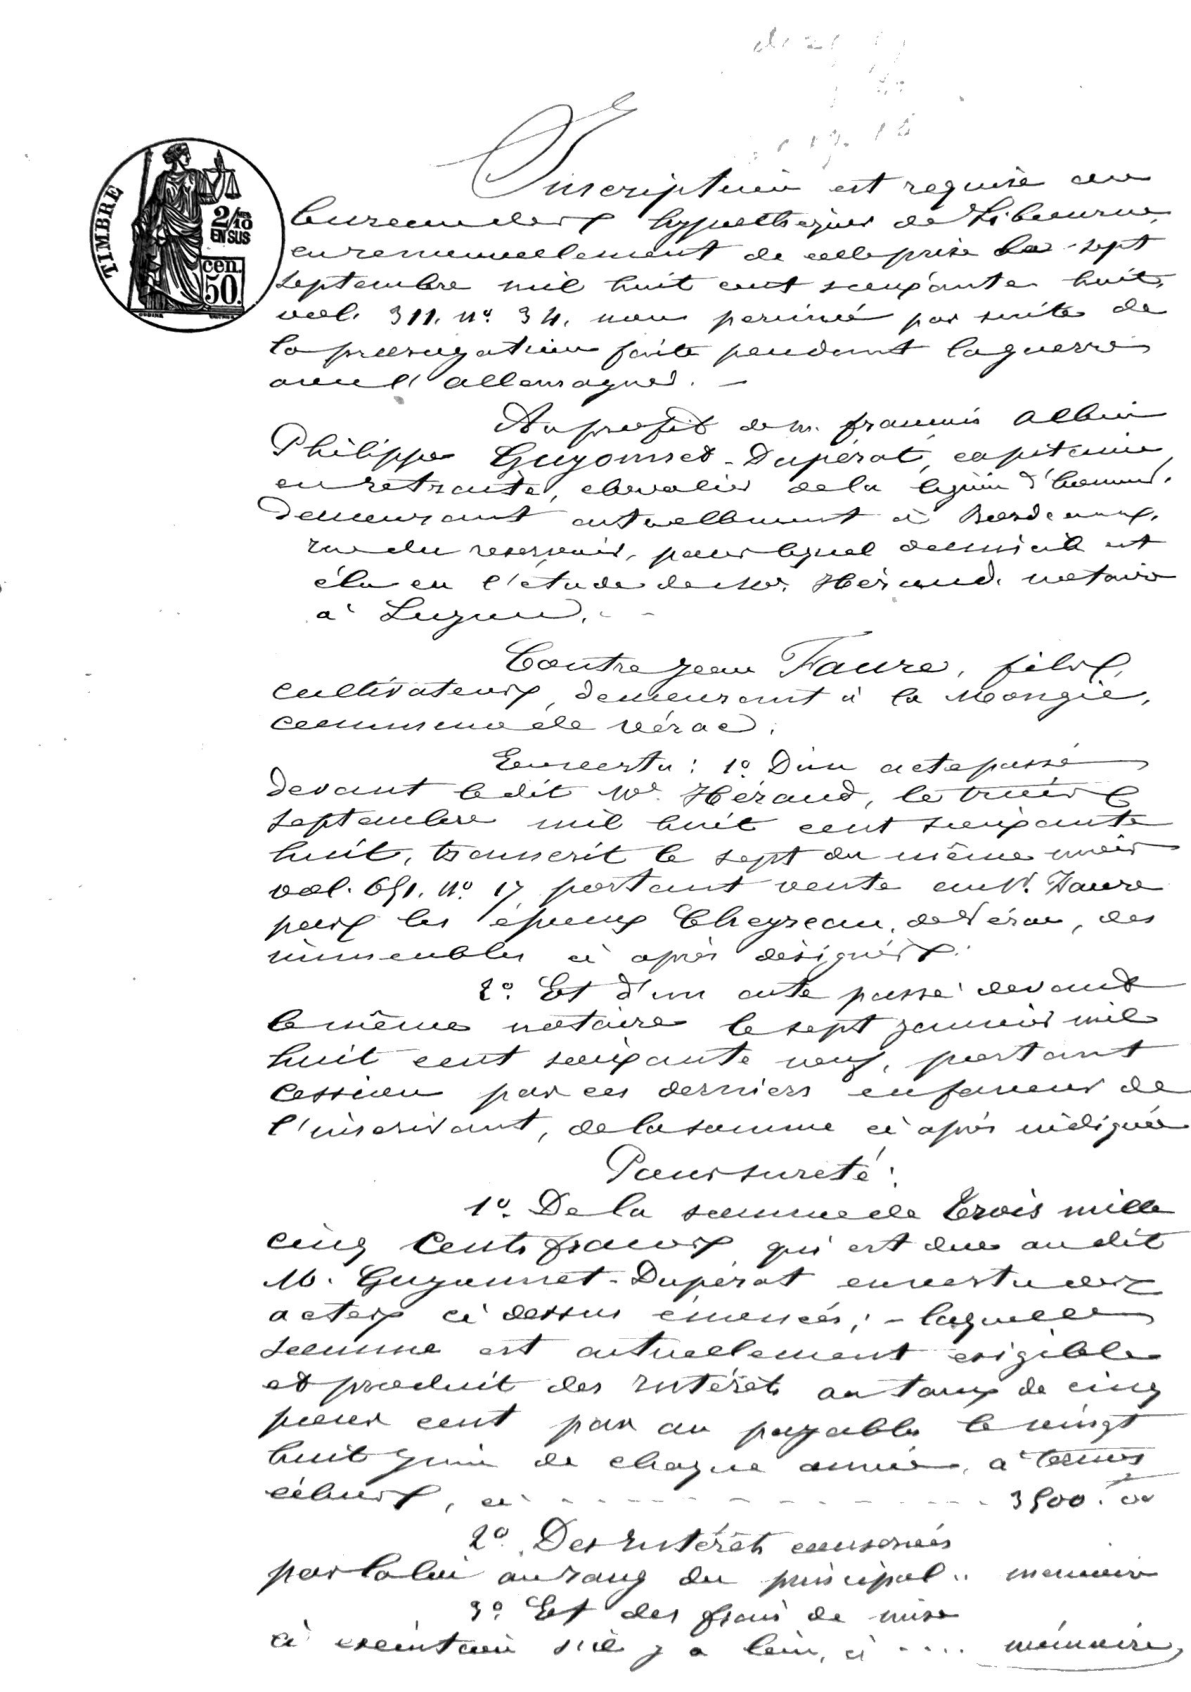 TIMBRE
2/10 mes
EN SUS
cen.
50.
Inscription est requise au
bureau des hypothèques de Libourne,
en renouvellement de celle prise le sept
septembre mil huit cent soixante huit,
vol. 311. nº 34. non perimée par suite de
la prorogation faite pendant la guerre
avec l'allemagne. –
Au profit de m. françois Albin
Philippe Guyonnet-Dupérat, capitaine
en retraite, chevalier de la légion d'honneur,
demeurant actuellement à Bordeaux,
rue du reservoir, pour lequel domicile est
élu en l'étude de Me. Héraud, notaire
à Lugon. - -
Contre Jean Faure, fils,
cultivateur, demeurant à la Mongie,
commune de Vérac.
En vertu : 1º D'un acte passé
devant le dit Me. Héraud, le trois
septembre mil huit cent soixante
huit, transcrit le sept du même mois
vol. 651. nº 17, portant vente au Sr. Faure
par les époux Cheyreau, de Vérac, des
immeubles ci après désignés.
2º. Et d'un acte passé devant
le même notaire le sept janvier mil
huit cent soixante neuf, portant
cession par ces derniers en faveur de
l'inscrivant, de la somme ci après indiquée
Pour sureté :
1º. De la somme de trois mille
cinq cents francs qui est due au dit
M. Guyonnet-Dupérat en vertu des
actes ci dessus énoncés ; - laquelle
somme est actuellement exigible
et produit des intérêts au taux de cinq
pour cent par an payables le vingt
huit juin de chaque année, à termes
échus, ci - - - - - - - - - - 3500. 00
2º. Des intérêts conservés
par la loi au rang du principal .. memoire
3º. Et des frais de mise
à exécution s'il y a lieu, ci - - .... mémoire,